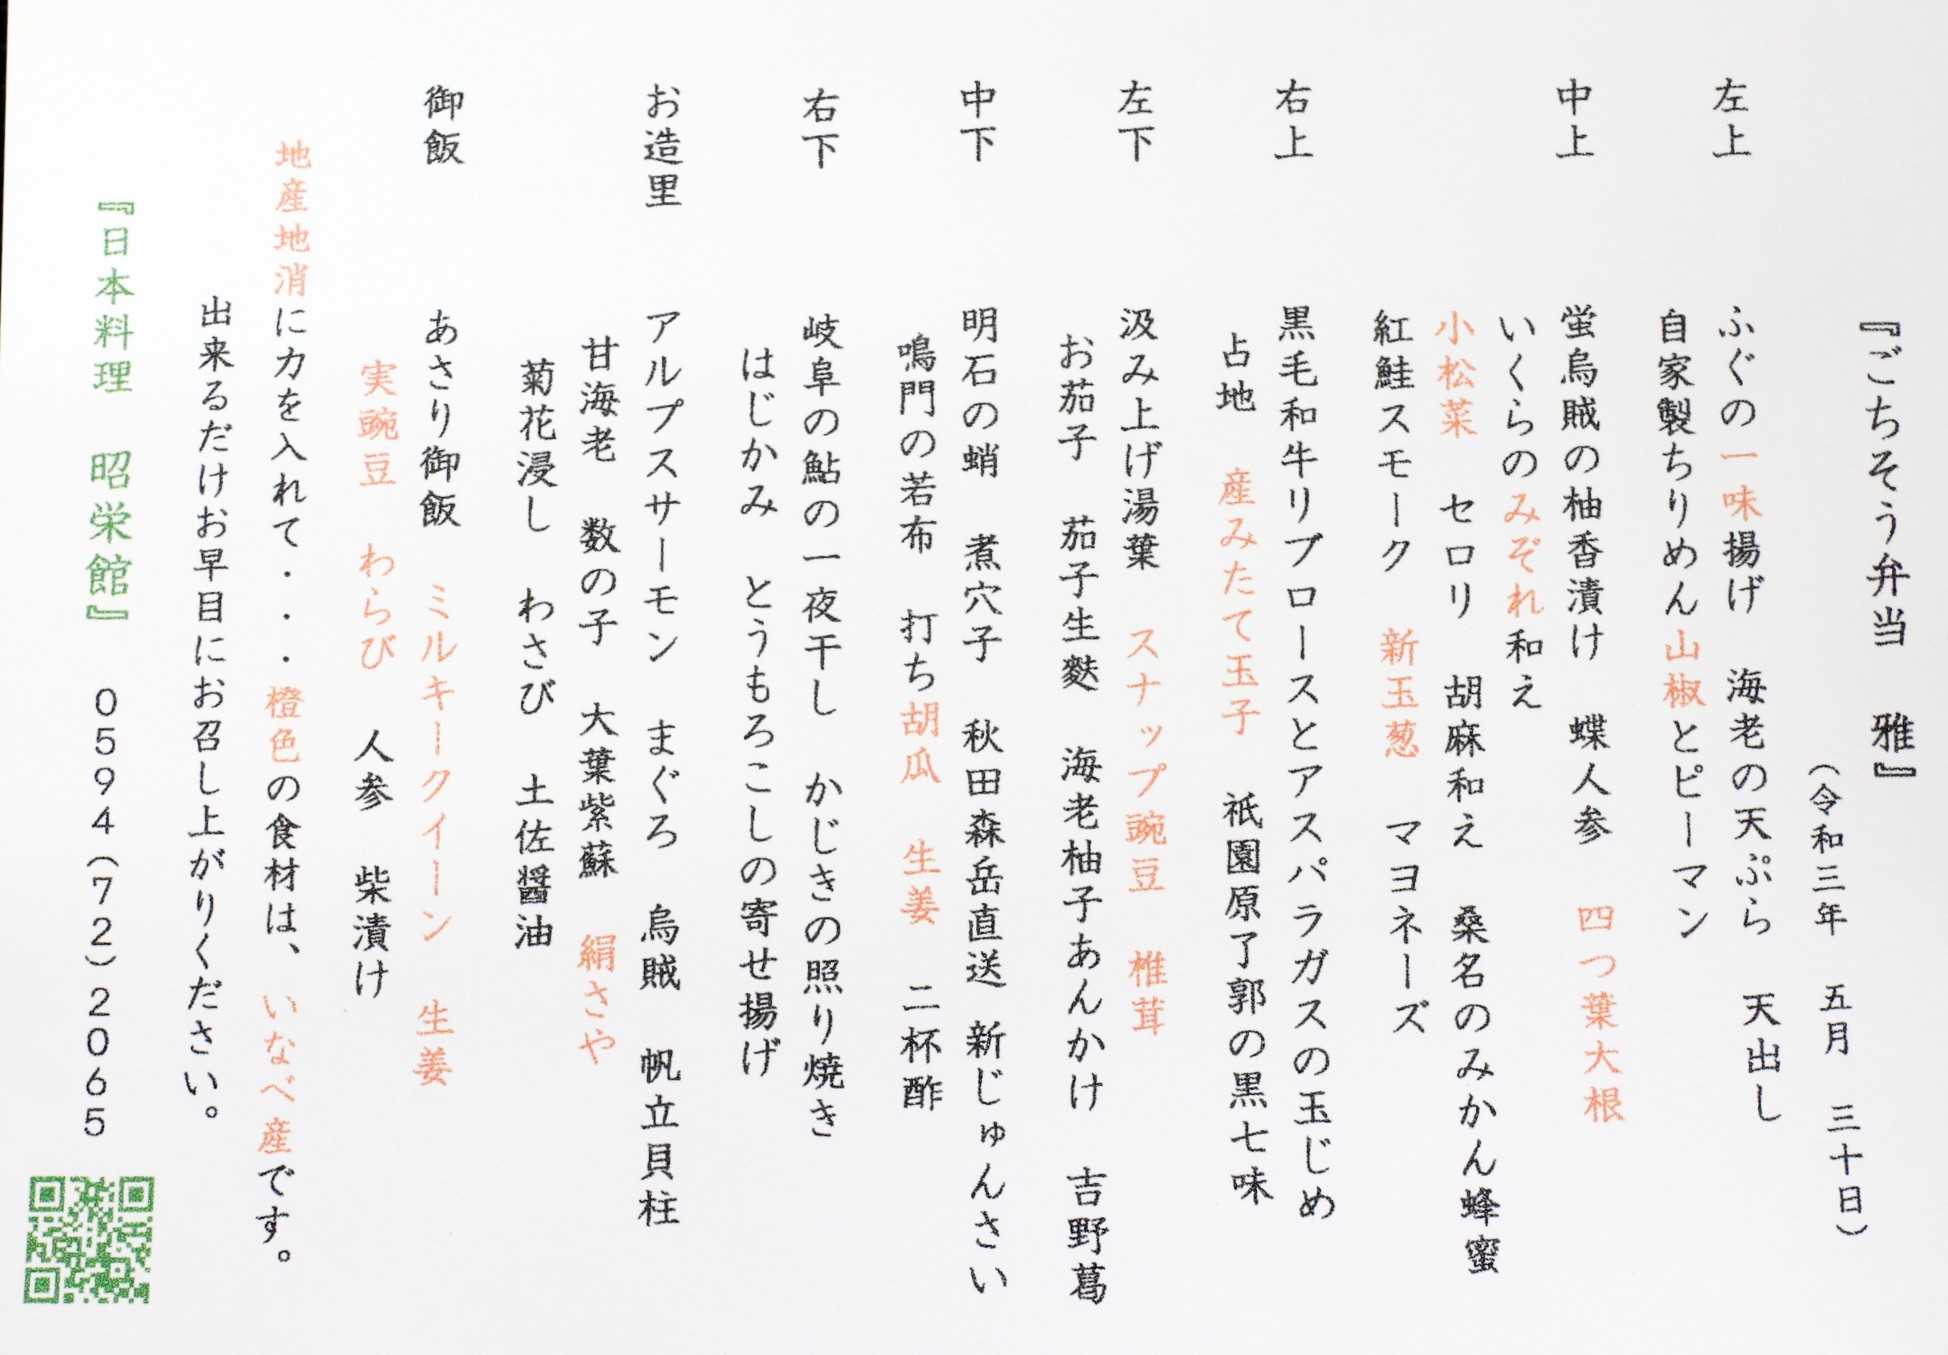 『ごちそう弁当　雅』
（令和三年　五月　三十日）
左上　ふぐの一味揚げ　海老の天ぷら　天出し
自家製ちりめん山椒とピーマン
中上　蛍烏賊の柚香漬け　蝶人参　四つ葉大根
いくらのみぞれ和え
小松菜　セロリ　胡麻和え　桑名のみかん蜂蜜
紅鮭スモーク　新玉葱　マヨネーズ
右上　黒毛和牛リブロースとアスパラガスの玉じめ
占地　産みたて玉子　祇園原了郭の黒七味
左下　汲み上げ湯葉　スナップ豌豆　椎茸
お茄子　茄子生麩　海老柚子あんかけ　吉野葛
中下　明石の蛸　煮穴子　秋田森岳直送　新じゅんさい
鳴門の若布　打ち胡瓜　生姜　二杯酢
右下　岐阜の鮎の一夜干し　かじきの照り焼き
はじかみ　とうもろこしの寄せ揚げ
お造里　アルプスサーモン　まぐろ　烏賊　帆立貝柱
甘海老　数の子　大葉紫蘇　絹さや
菊花浸し　わさび　土佐醤油
御飯　あさり御飯　ミルキークイーン　生姜
実豌豆　わらび　人参　柴漬け
地産地消に力を入れて・・・橙色の食材は、いなべ産です。
出来るだけお早目にお召し上がりください。
『日本料理　昭栄館』　０５９４（７２）２０６５